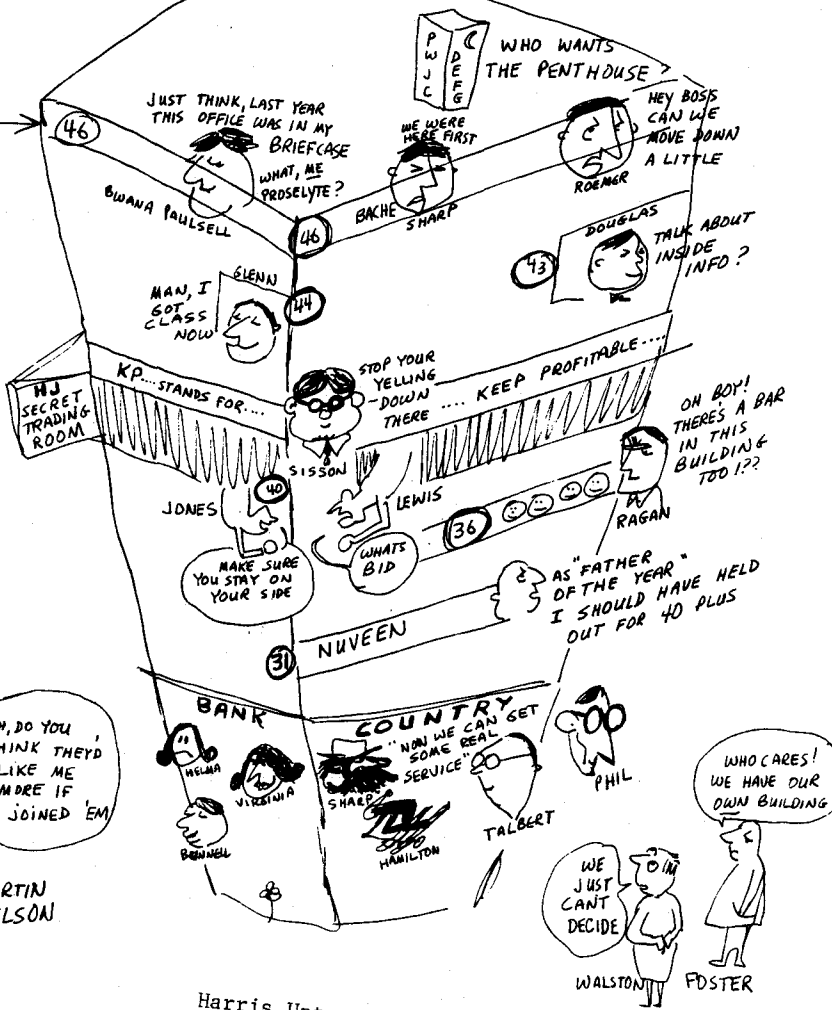 PWJC
DEFG
WHO WANTS
THE PENTHOUSE?
JUST THINK, LAST YEAR
THIS OFFICE WAS IN MY
BRIEFCASE
WHAT, ME
PROSELYTE?
46
BWANA PAULSELL
WE WERE
HERE FIRST
BACHE
SHARP
46
HEY BOSS
CAN WE
MOVE DOWN
A LITTLE
ROEMER
DOUGLAS
43
TALK ABOUT
INSIDE
INFO?
GLENN
MAN, I
GOT
CLASS
NOW
44
HJ
SECRET
TRADING
ROOM
KP....STANDS FOR....
STOP YOUR
YELLING
DOWN
THERE
.... KEEP PROFITABLE....
SISSON
OH BOY!
THERE'S A BAR
IN THIS
BUILDING
TOO!??
RAGAN
40
JONES
LEWIS
36
MAKE SURE
YOU STAY ON
YOUR SIDE
WHATS
BID
AS "FATHER
OF THE YEAR"
I SHOULD HAVE HELD
OUT FOR 40 PLUS
NUVEEN
31
BANK
COUNTRY
"NOW WE CAN GET
SOME REAL
SERVICE"
HELMA
VIRGINIA
BUNNELL
SHARP
HAMILTON
TALBERT
PHIL
H, DO YOU
HINK THEY'D
LIKE ME
MORE IF
JOINED 'EM
RTIN
LSON
WHO CARES!
WE HAVE OUR
OWN BUILDING
WE
JUST
CAN'T
DECIDE
WALSTON
FOSTER
Harris